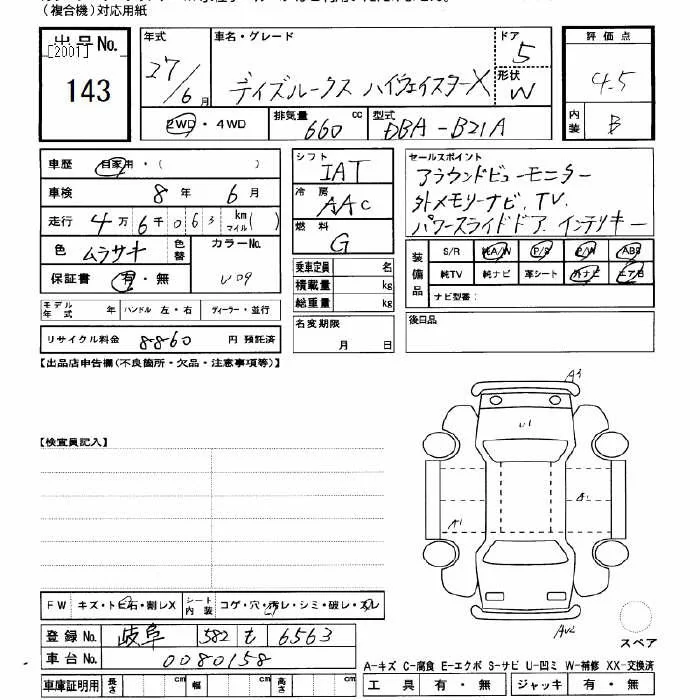 （複合機）対応用紙
出品No. [2001] 143
年式 27/6月
車名・グレード デイズルークス ハイウェイスターX
ドア 5
形状 W
2WD・4WD
排気量 660 cc
型式 DBA-B21A
評価点 4.5
内装 B
車歴 自家用・( )
車検 8年 6月
走行 4万6千063 km マイル( )
色 ムラサキ 色替 カラーNo. L09
保証書 有・無
モデル年式 年 ハンドル 左・右 ディーラー・並行
リサイクル料金 8860 円 預託済
シフト IAT
冷房 AAC
燃料 G
乗車定員 名
積載量 kg
総重量 kg
名変期限 月 日
セールスポイント
アラウンドビューモニター
外メモリーナビ、TV、
パワースライドドア、インテリキー
装備品 S/R 純A/W P/S P/W ABS
純TV 純ナビ 革シート 外ナビ エアB
ナビ型番：
後日品
【出品店申告欄(不良箇所・欠品・注意事項等)】
【検査員記入】
A3
U1
A1
A1
スペア
FW キズ・トビ石・割レX シート内装 コゲ・穴・汚レ・シミ・破レ・スレ
登録No. 岐阜 582 も 6563
車台No. 0080158
車庫証明用 長さ cm 幅 cm 高さ cm
A-キズ C-腐食 E-エクボ S-サビ U-凹ミ W-補修 XX-交換済
工具 有・無 ジャッキ 有・無